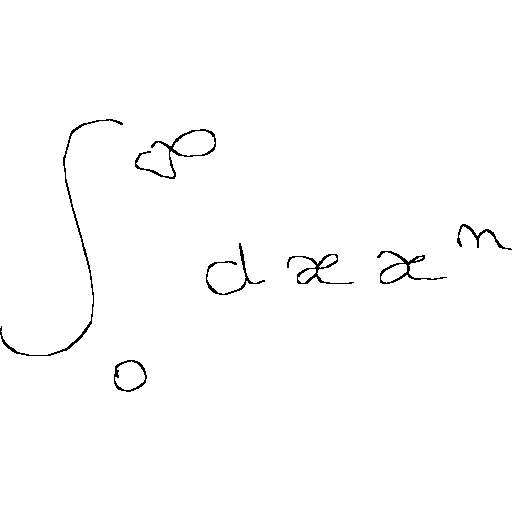 \int_{0}^{\infty} d x x^{n}